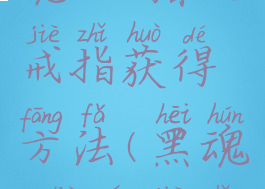 jiè zhǐ huò dé
戒指获得
fāng fǎ hēi hún
方法(黑魂